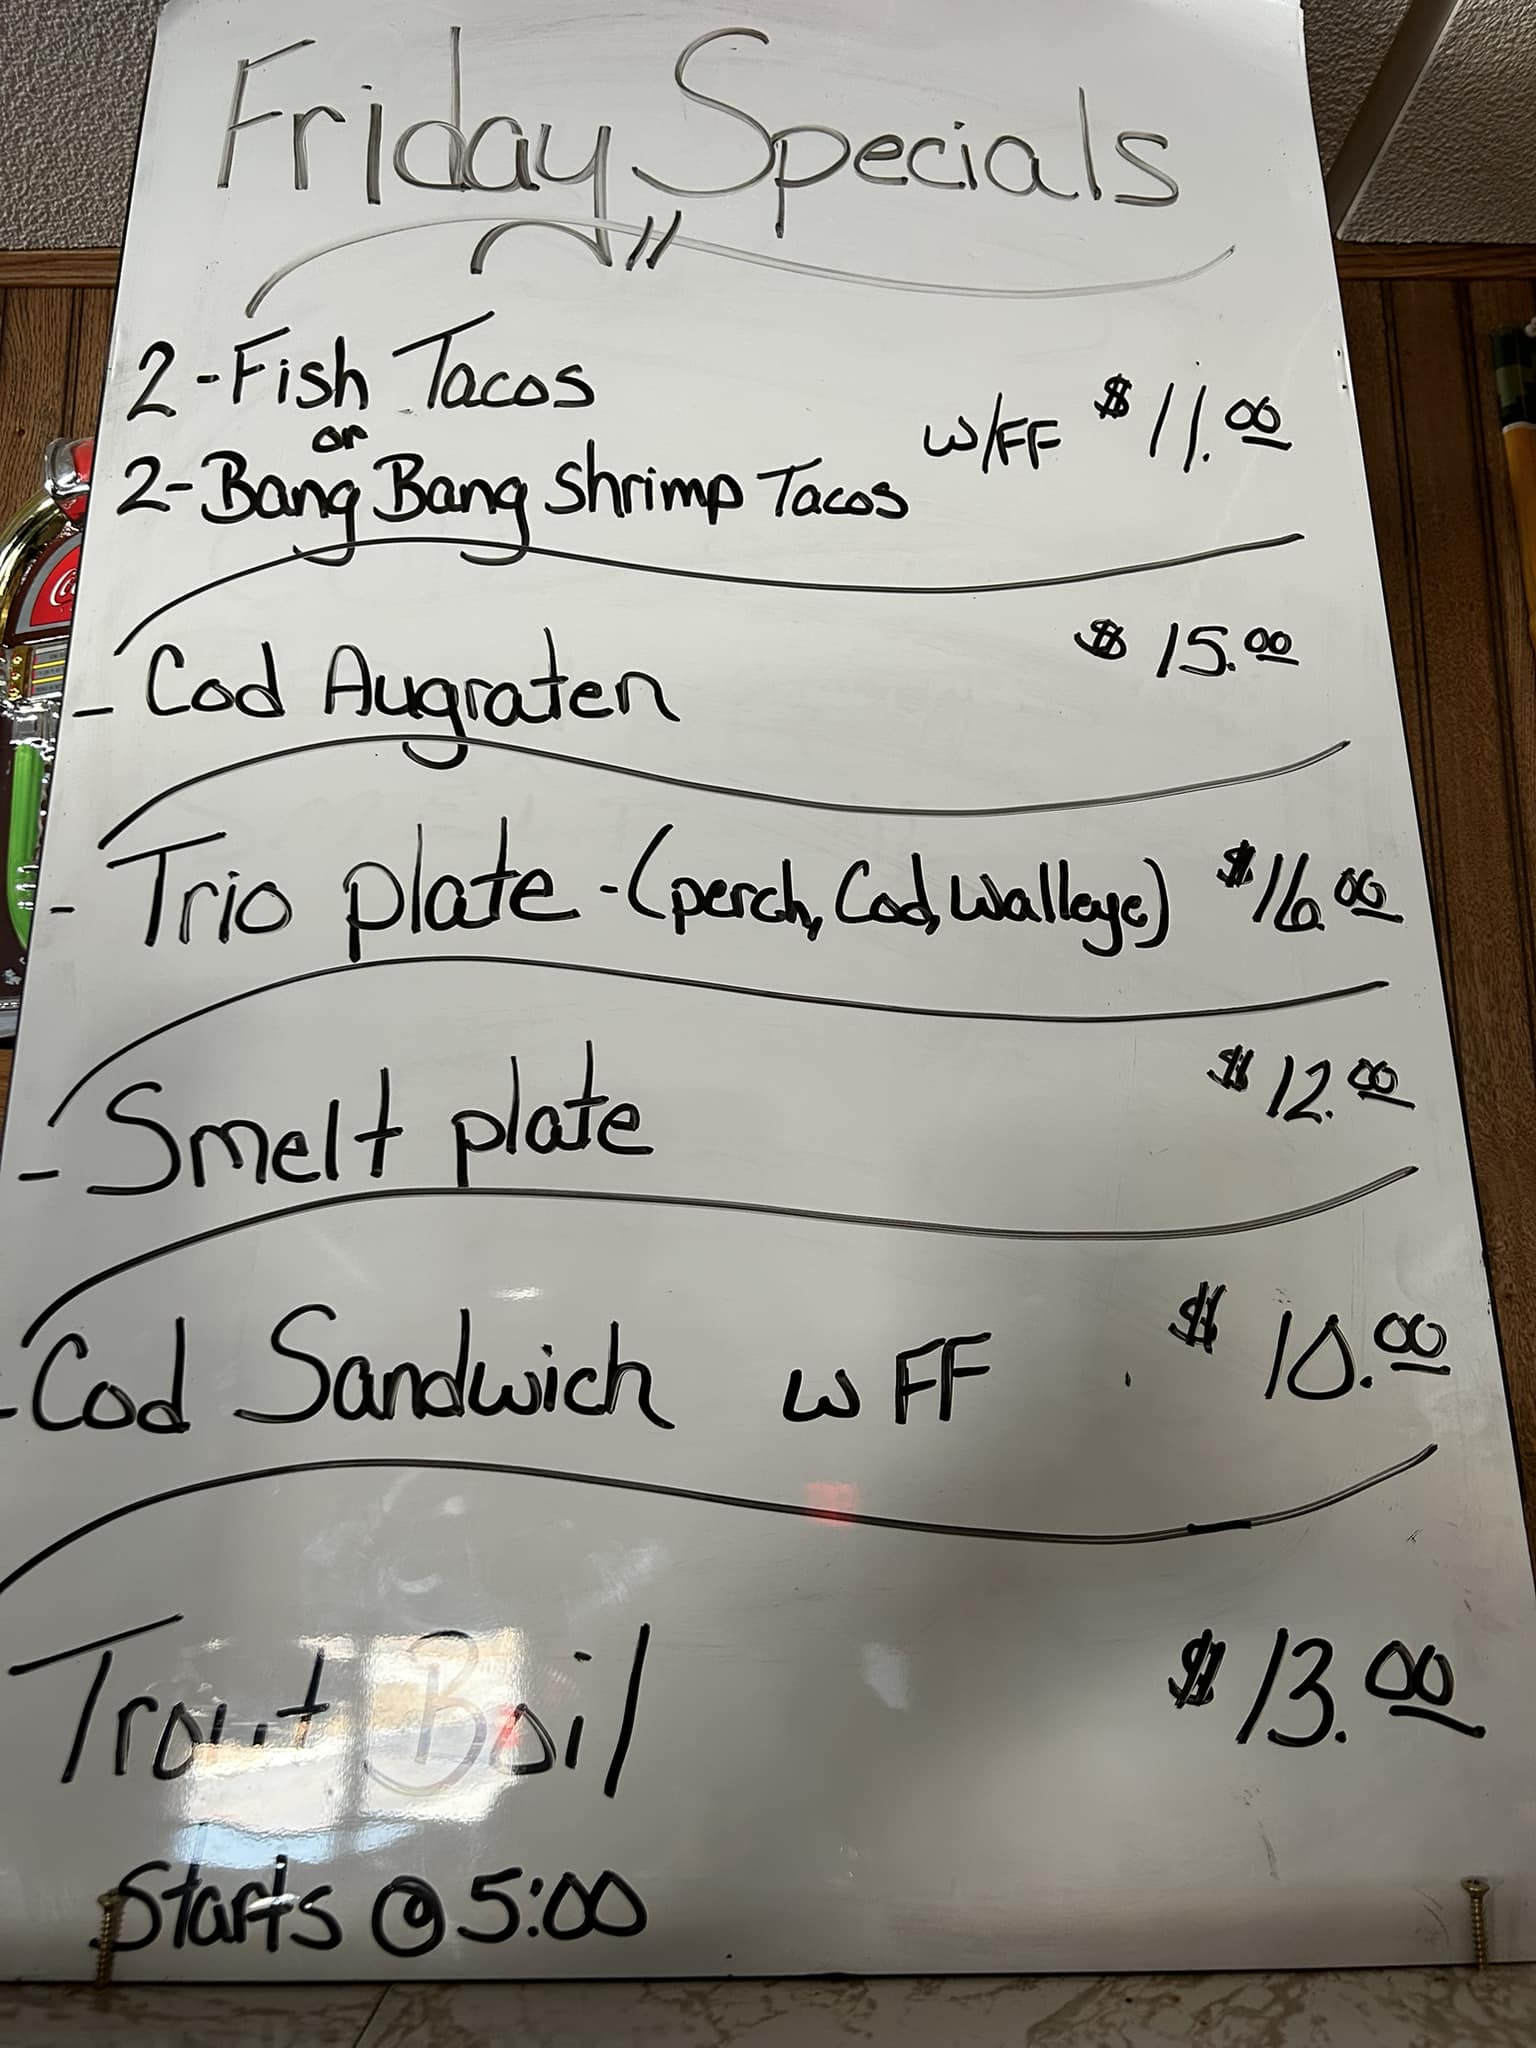 Friday Specials
2-Fish Tacos
or
2-Bang Bang Shrimp Tacos w/FF $11.00
- Cod Augraten $15.00
- Trio plate -(perch, Cod, Walleye) $16.00
- Smelt plate $12.00
-Cod Sandwich w FF $10.00
Trout Boil $13.00
Starts @ 5:00